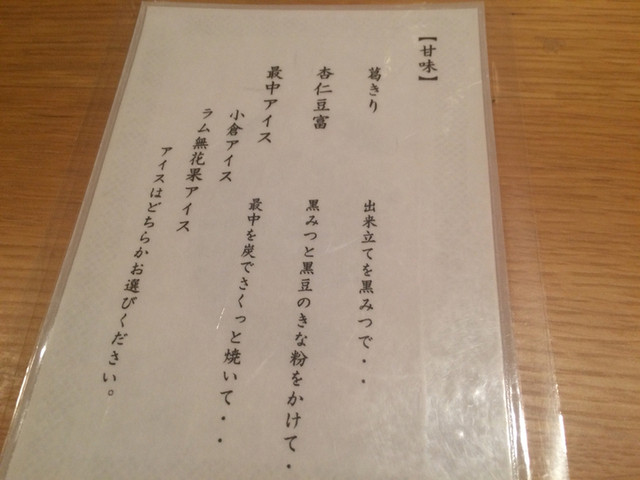 【甘味】
葛きり
出来立てを黒みつで・・
杏仁豆富
黒みつと黒豆のきな粉をかけて・
最中アイス
最中を炭でさくっと焼いて・・
小倉アイス
ラム無花果アイス
アイスはどちらかお選びください。